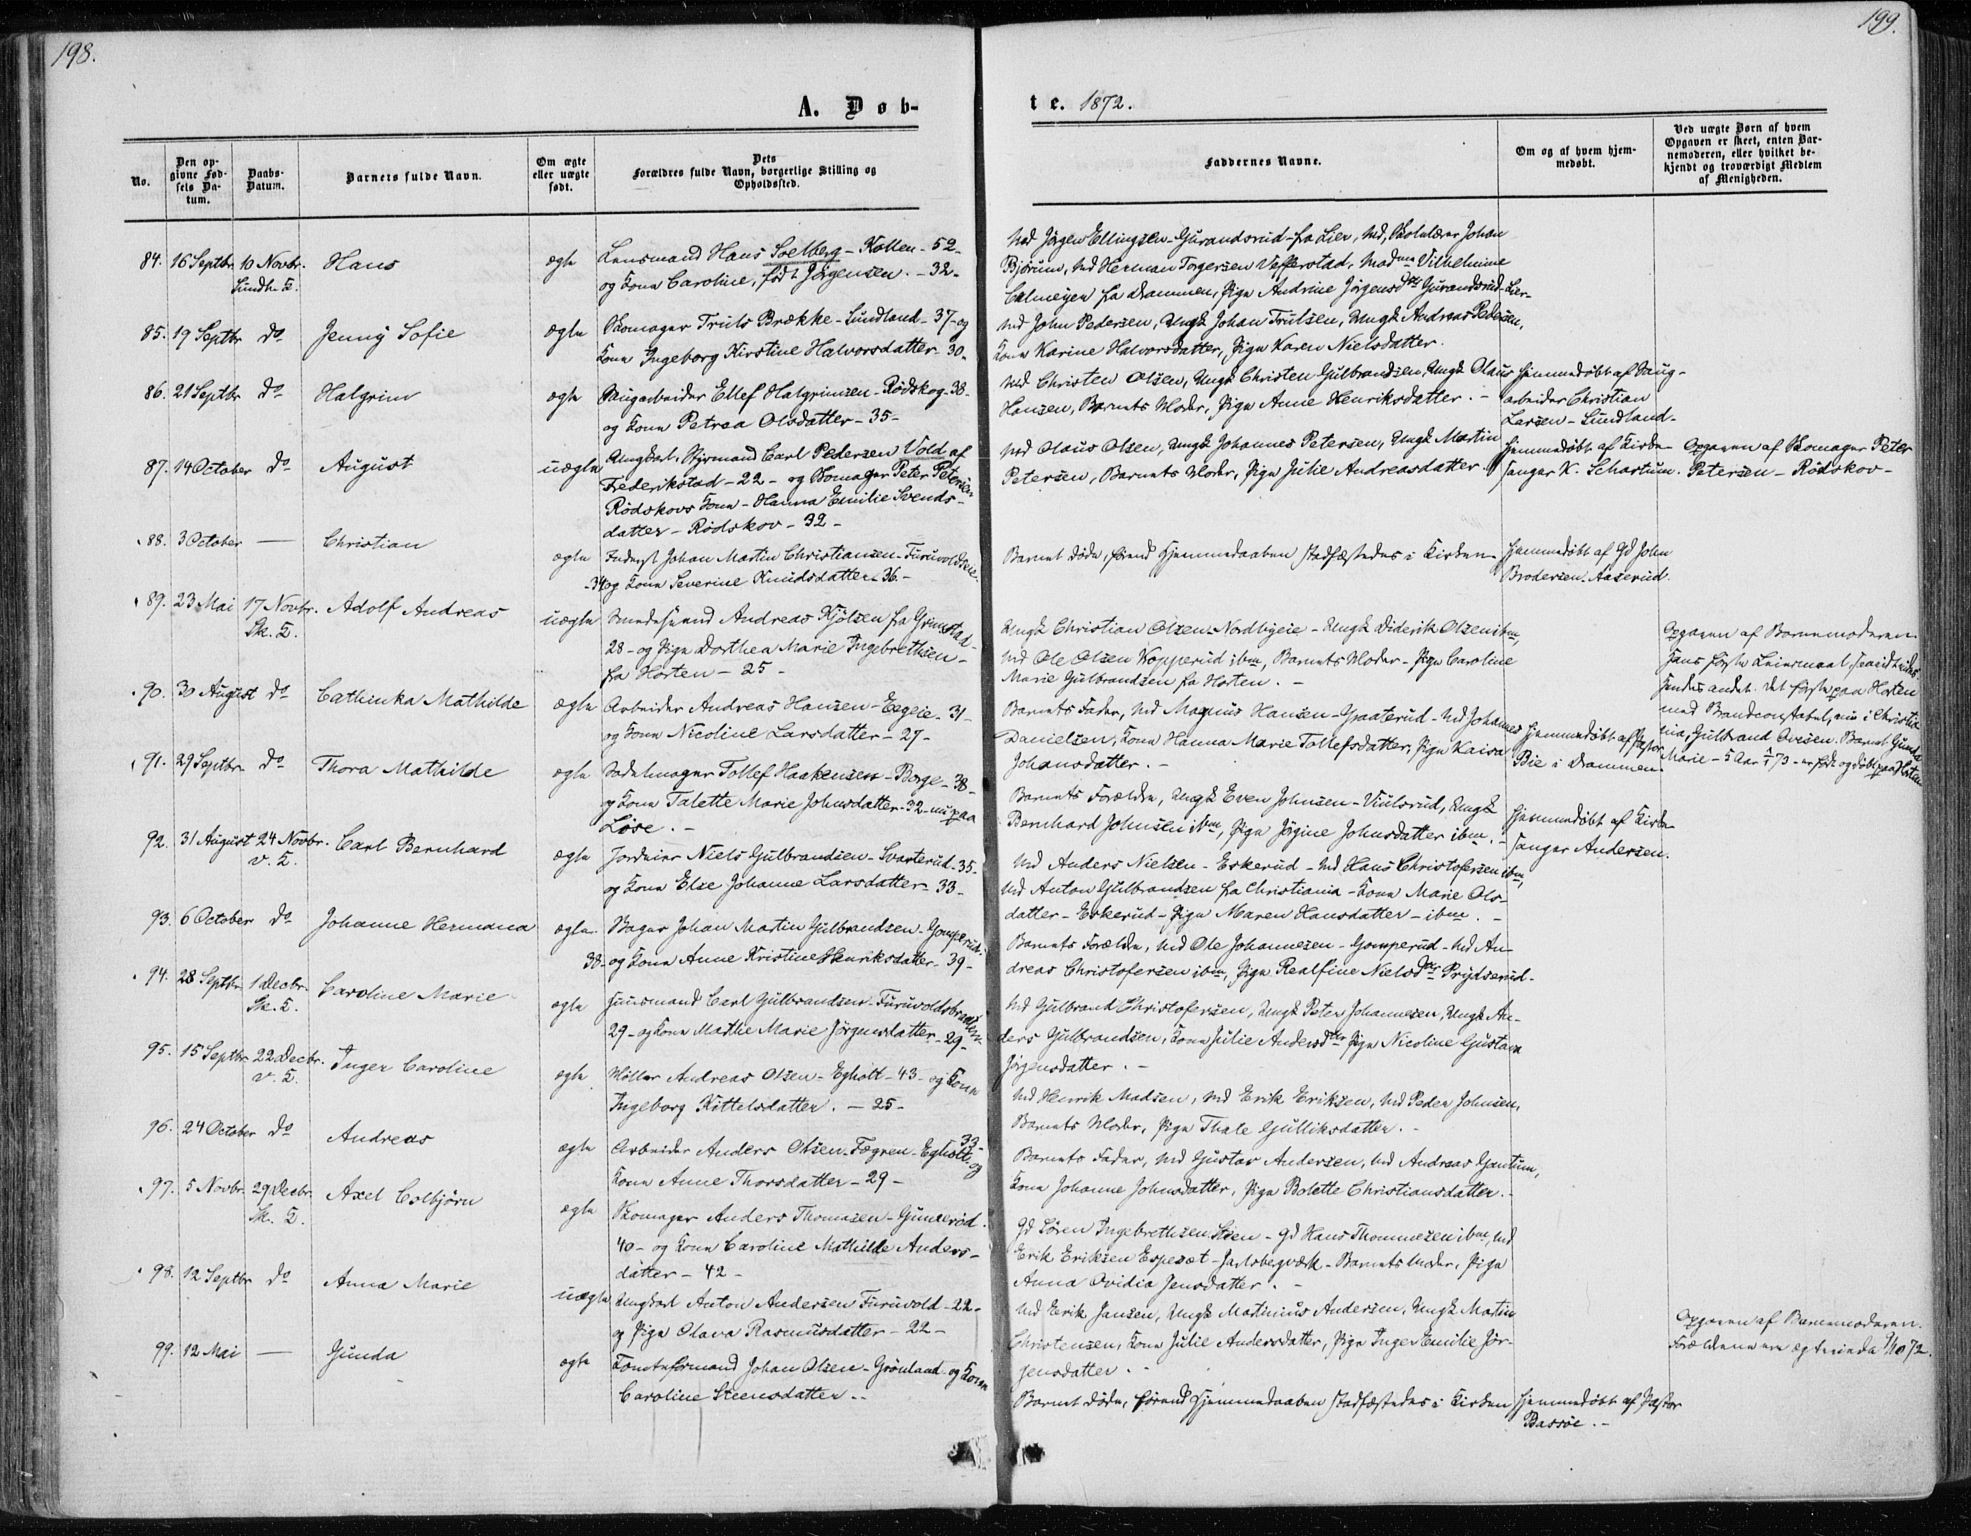 198.
A. Døb-
No.
Den op-
givne Fød-
sels Da-
tum.
Daabs-
Datum.
Barnets fulde Navn.
Om ægte
eller uægte
født.
Dets
Forældres fulde Navn, borgerlige Stilling og
Opholdssted.
84. 16 Septbr. 10 Novbr. Hans ægte Lensmand Hans Solberg - Kollen - 52 -
Sundh. T. og Kone Caroline, født Jörgensen. - 32 -
85. 19 Septbr do Jenny Sofie ægte Skomager Truls Brække - Sundland - 37 - og
Kone Ingeborg Kirstine Halvorsdatter - 30 -
86. 21 Septbr do Halgrim ægte Saugarbeider Ellef Halgrimsen - Rødskog - 38 -
og Kone Petraa Olsdatter - 35 -
87. 14 October do August uægte Ungkarl, Styrmand Carl Pedersen Vold af
Frederikstad - 22 - og Skomager Peter Petersen
Rødskovs Kone - Hanna Emilie Svends-
datter - Rødskov - 32 -
88. 3 October — Christian ægte Inderst Johan Martin Christiansen - Furuvoldseie -
- 34 og Kone Severine Knudsdatter - 36 -
89. 23 Mai 17 Novbr. Adolf Andreas uægte Smedesvend Andreas Kjölsen fra Grimstad -
Sk. T. 28 - og Pige Dorthea Marie Ingebrethsen -
fra Horten - 25 -
90. 30 August do Cathinka Mathilde ægte Arbeider Andreas Hansen - Eegeie - 31 -
og Kone Nicoline Larsdatter - 27 -
91. 29 Septbr do Thora Mathilde ægte Sadelmager Tollef Haakensen - Borge - 38 -
og Kone Talette Marie Johnsdatter - 32 - nu paa
Løse. -
92. 31 August 24 Novbr. Carl Bernhard ægte Jordeier Niels Gulbrandsen - Svarterud - 35 -
v. T. og Kone Else Johanne Larsdatter - 33 -
93. 6 October do Johanne Hermana ægte Bager Johan Martin Gulbrandsen - Gomperud -
38 - og Kone Anne Kristine Henriksdatter - 39 -
94. 28 Septbr. 1 Decbr. Caroline Marie ægte Huusmand Carl Gulbrandsen - Furuvoldsbraaten
Sk. T. 29 - og Kone Mathe Marie Jörgensdatter - 29 -
95. 15 Septbr. 22 Decbr. Inger Caroline ægte Møller Andreas Olsen - Egholt - 43 - og Kone
v. T. Ingeborg Kittelsdatter. - 25 -
96. 24 October do Andreas ægte Arbeider Anders Olsen - Fægren - Egholt - 33 - og
Kone Anne Thorsdatter - 29 -
97. 5 Novbr. 29 Decbr. Axel Esbjørn ægte Skomager Anders Thomasen - Gunerød
Sk. T. 40 - og Kone Caroline Mathilde Anders-
datter - 42 -
98. 12 Septbr do Anna Marie uægte Ungkarl Anton Andersen Furuvold - 22 -
og Pige Olava Rasmusdatter - 22 -
99. 12 Mai — Gunda ægte Tomteformand Johan Olsen - Grönland og Kone
Caroline Steensdatter -
199.
te. 1872.
Faddernes Navne.
Om og af hvem hjem-
medøbt.
Ved uægte Børn af hvem
Opgaven er skeet, enten Bar-
nemoderen, eller hvilket be-
kjendt og troværdigt Medlem
af Menigheden.
Md Jörgen Ellingsen - Gurandsrud - fra Lier, Md, Skolelærer Johan
Bjørum, Md Herman Torgersen Vefferstad, Madme Vilhelmine
Calmeyer fra Drammen, Pige Andrine Jörgensdtr Gurandsrud - Lier -
Md John Pedersen, Ungk Johan Trulsen, Ungk Andreas Pedersen,
Kone Karine Halvorsdatter, Pige Karen Nielsdatter.
Md Christen Olsen, Ungk Christen Gulbrandsen, Ungk Olaus Hjemmedøbt af Saug-
Hansen, Barnets Moder, Pige Anne Henriksdatter. - arbeider Christian
Larsen - Sundland -
Md Olaus Olsen, Ungk Johannes Petersen, Ungk Martin Hjemmedøbt af Kirke- Opgaven af Skomager Peter
Petersen, Barnets Moder, Pige Julie Andreasdatter sanger K. Schartum. Petersen - Rødskov -
Barnet døde, førend Hjemmedaaben stadfæstedes i Kirken - Hjemmedøbt af Gd John
Brodersen - Aaserud.
Ungk Christian Olsen - Nordbyeie - Ungk Diderik Olsen ibm, Opgaven af Barnemoderen
Md Ole Olsen Kopperud ibm, Barnets Moder - Pige Caroline Hans første Leiermaal,
Marie Gulbrandsen fra Horten. - hendes andet. Det første paa Horten
Barnets Fader, Md Magnus Hansen - Gaaterud - Md Johannes Hjemmedøbt af Pastor med Baadconstabel, nu i Christia-
Danielsen, Kone Hanna Marie Tollefsdatter, Pige Kaisa Bie i Drammen - nia, Gulbrand Evesen. Barnet Gunda
Johansdatter. - Marie - 5 Aar 1/1 73 - er født og døbt paa Horten
Barnets Forældre, Ungk Even Johnsen - Viulsrud, Ungk Hjemmedøbt af Kirke-
Bernhard Johnsen ibm, Pige Jörgine Johnsdatter ibm. - sanger Andersen.
Md Anders Nielsen - Eskerud - Md Hans Christofersen ibm,
Md Anton Gulbrandsen fra Christiania - Kone Marie Ols-
datter - Eskerud - Pige Maren Hansdatter - ibm. -
Barnets Forældre, Md Ole Johannesen - Gomperud - Md An-
dreas Christofersen ibm, Pige Realfine Nielsdtr Prydserud -
Md Gulbrand Christofersen, Ungk Peter Johannesen, Ungk An-
ders Gulbrandsen, Kone Julie Andersdtr, Pige Nicoline Gustava
Jörgensdatter. -
Md Henrik Madsen, Md Erik Eriksen, Md Peder Johnsen,
Barnets Moder, Pige Thale Gulliksdatter. -
Barnets Fader, Md Gustav Andersen, Md Andreas Gantum,
Kone Johanne Johnsdatter, Pige Bolette Christiansdatter. -
Gd Sören Ingebrethsen Steen - Gd Hans Thommesen ibm, Md
Erik Eriksen Espeset - Jarlsbergværk - Barnets Moder, Pige
Anna Ovidia Jensdatter. -
Md Erik Jansen, Ungk Matinius Andersen, Ungk Martin Opgaven af Barnemoderen.
Christensen, Kone Julie Andersdatter, Pige Inger Emilie Jör- Forældrene ere ægteviede 72.
gensdatter. -
Barnet døde, førend Hjemmedaaben stadfæstedes i Kirken Hjemmedøbt af Pastor
Bassøe. -